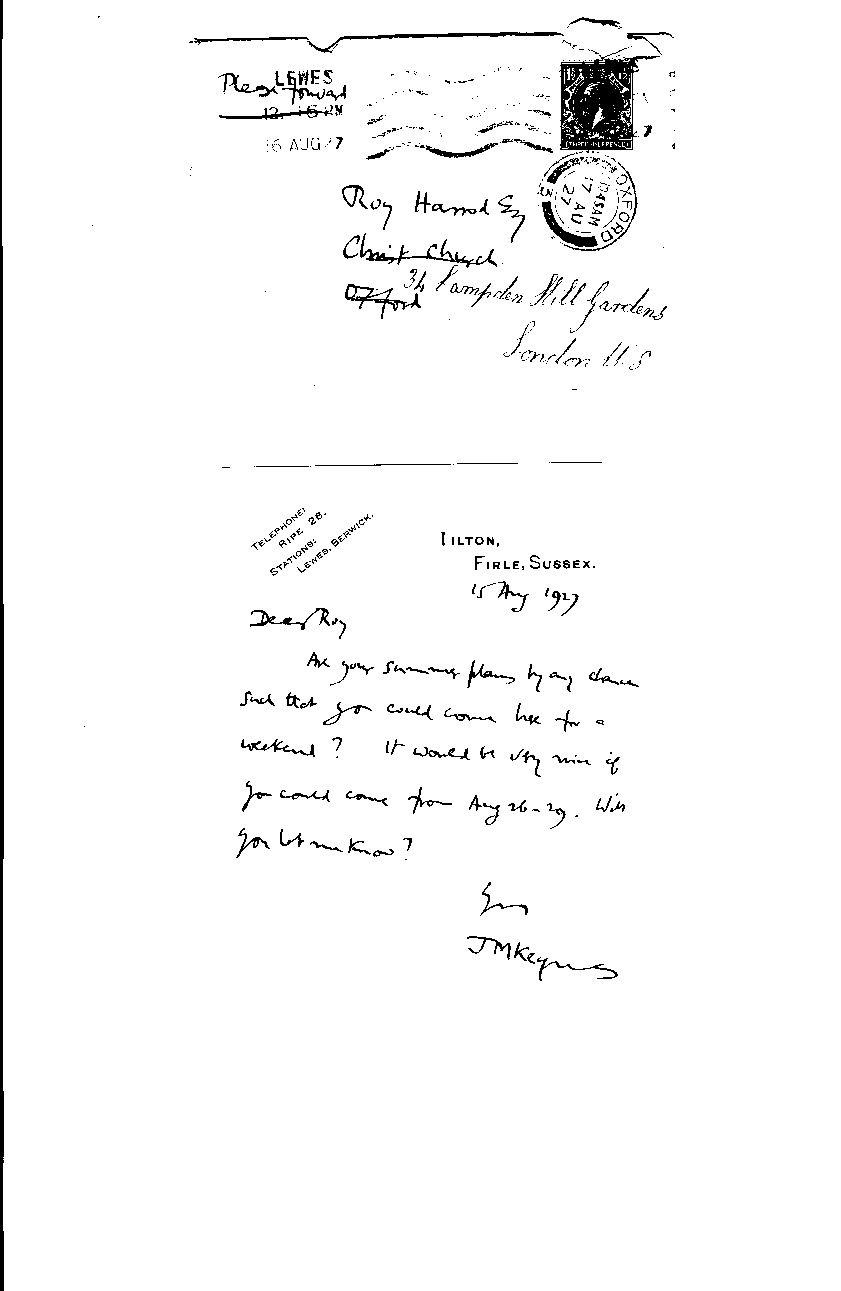 LEWES
Please forward
12. 15 PM
16 AUG 27
THREE HALFPENCE
OXFORD
10 45 AM
17 AU
27
3
Roy Harrod Esq
Christ Church
Oxford
34 Campden Hill Gardens
London W.8
TELEPHONE:
RIPE 28.
STATIONS:
LEWES, BERWICK.
TILTON,
FIRLE, SUSSEX.
15 Aug 1927
Dear Roy
Are your summer plans by any chance
such that you could come here for a
weekend? It would be very nice if
you could come from Aug 26-29. Will
you let me know?
Yrs
JMKeynes